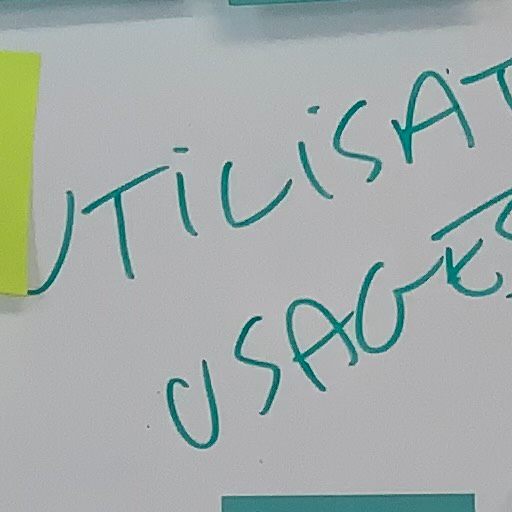 UTILISAT
USAGES